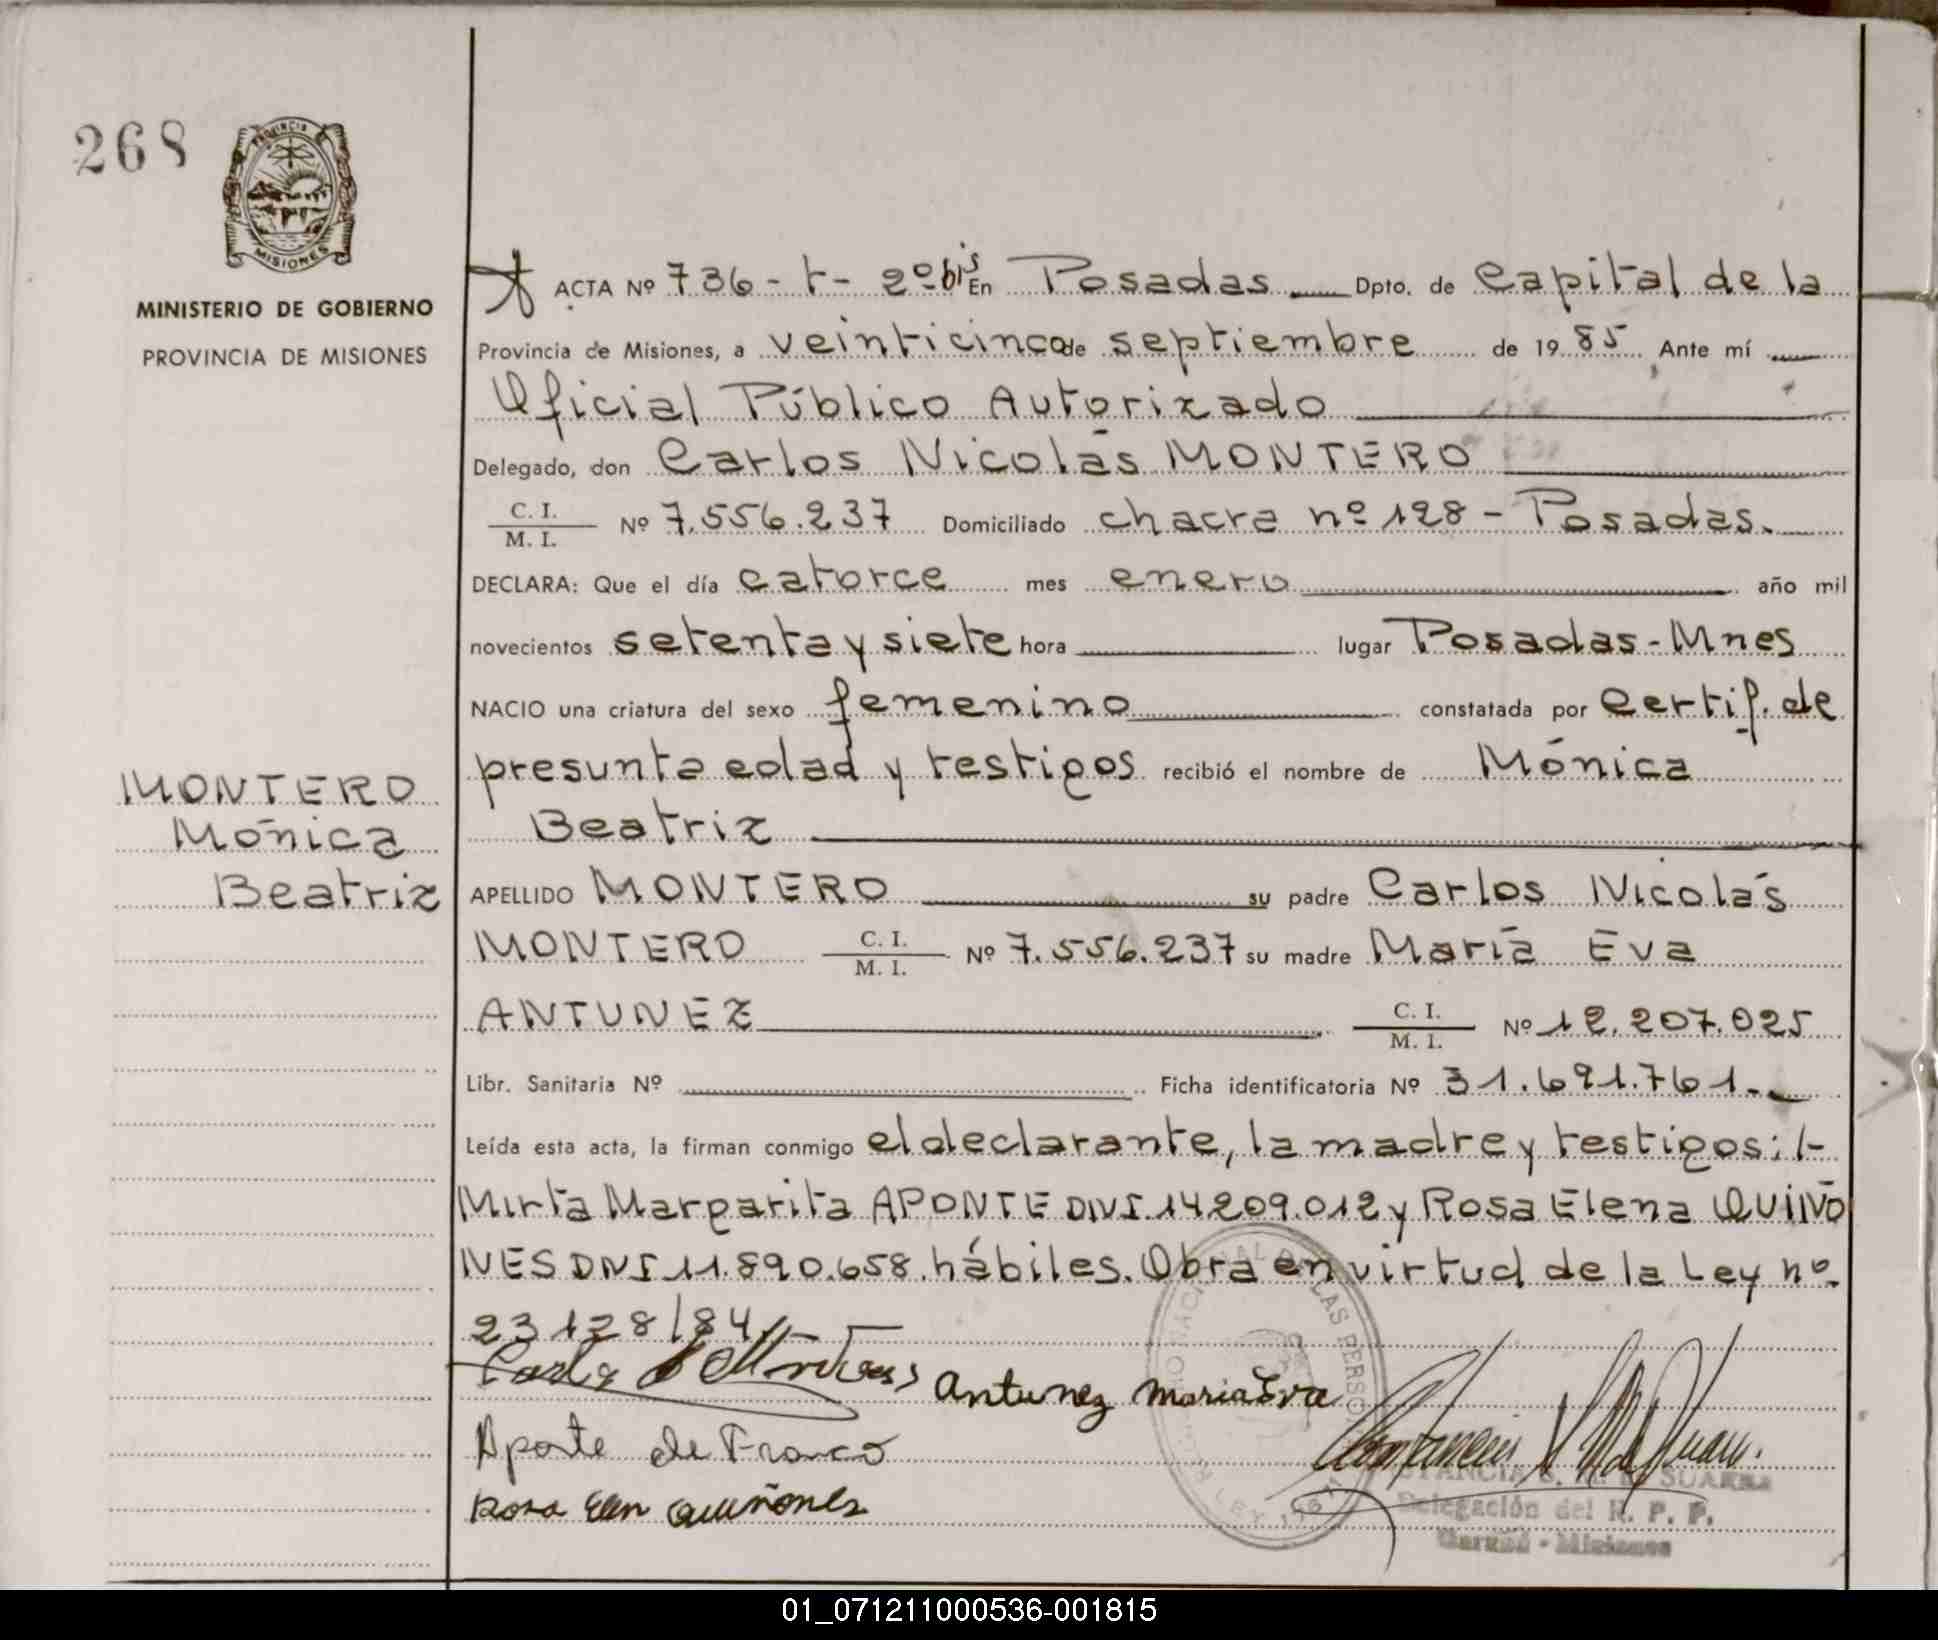 268
PROVINCIA
MISIONES
MINISTERIO DE GOBIERNO
PROVINCIA DE MISIONES
MONTERO
Mónica
Beatriz
ACTA Nº 736-t-2º bis En Posadas Dpto. de Capital de la
Provincia de Misiones, a veinticinco de septiembre de 1985 Ante mí
Oficial Público Autorizado
Delegado, don Carlos Nicolás MONTERO
C. I.
M. I. Nº 7.556.237 Domiciliado chacra nº 128 - Posadas.
DECLARA: Que el día catorce mes enero año mil
novecientos setenta y siete hora lugar Posadas-Mnes
NACIO una criatura del sexo femenino constatada por Certif. de
presunta edad y testigos recibió el nombre de Mónica
Beatriz
APELLIDO MONTERO su padre Carlos Nicolás
MONTERO C. I. M. I. Nº 7.556.237 su madre María Eva
ANTUNEZ C. I. M. I. Nº 12.207.025
Libr. Sanitaria Nº Ficha identificatoria Nº 31.691.761.
Leída esta acta, la firman conmigo el declarante, la madre y testigos:/-
Mirta Margarita APONTE DNI.14209.012 y Rosa Elena QUIÑO
NES DNI 11.890.658. hábiles. Obra en virtud de la Ley nº
23128/84//-
Antunez Maria Eva
Aponte de Franco
Rosa Elen Quiñonez
Delegación del R. P. P.
Garupá - Misiones
01_071211000536-001815